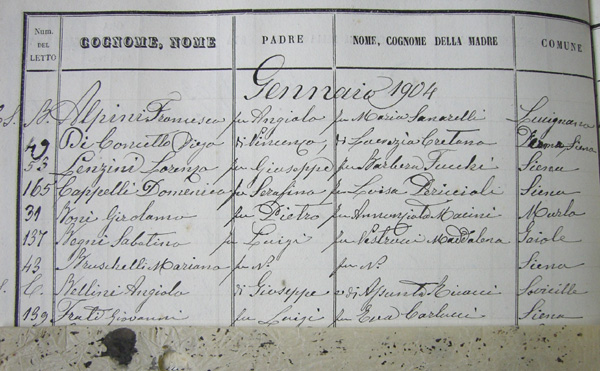 Num. DEL LETTO COGNOME, NOME PADRE NOME, COGNOME DELLA MADRE COMUNE
Gennaio 1904
B. Alpini Francesco fu Angiolo fu Maria Sanarelli Lucignano
49 Di Concetto Diego di Vincenzo di Lucrezia Cretana Siena
53 Lenzini Lorenzo fu Giuseppe fu Barbera Fucchi Siena
165 Cappelli Domenico fu Serafino fu Luisa Periccioli Siena
31 Boni Girolamo fu Pietro fu Annunziata Macini Murlo
137 Segni Sabatino fu Luigi fu Maddalena Gaiole
43 Bruschelli Mariano fu N. fu N. Siena
C. Bellini Angiolo di Giuseppe e di Assunta Sovicille
139 Frati Giovanni fu Luigi fu Eva Carlucci Siena